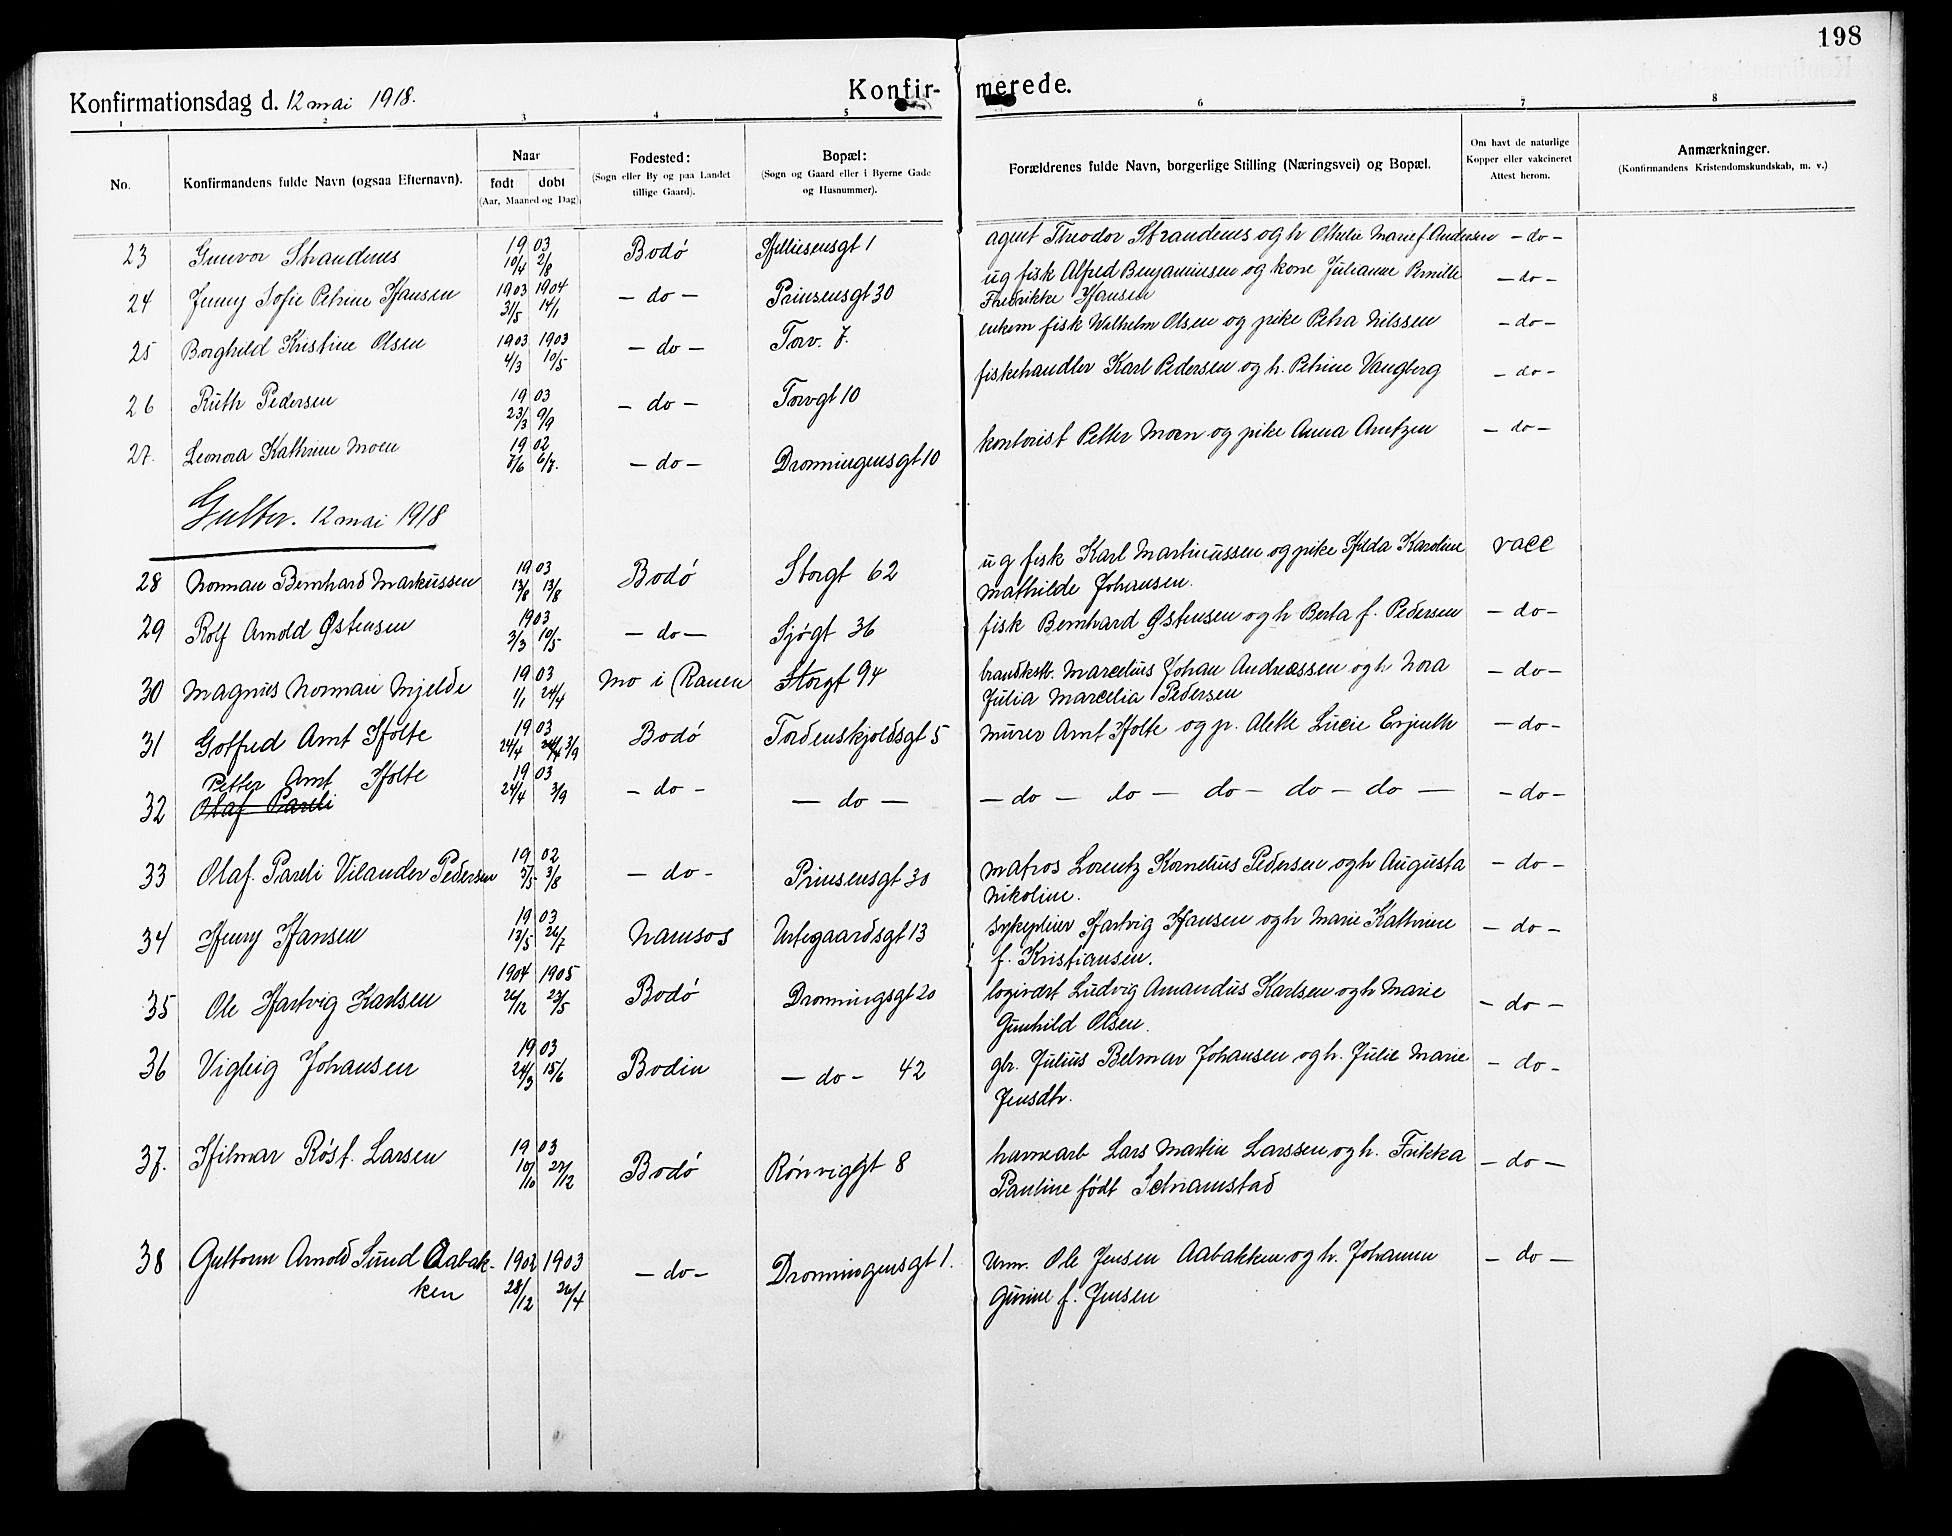 198
Konfirmationsdag d. 12 mai 1918. Konfir- merede.
1 2 3 4 5 6 7 8
No. Konfirmandens fulde Navn (ogsaa Efternavn). Naar født døbt (Aar, Maaned og Dag). Fødested: (Sogn eller By og paa Landet tillige Gaard). Bopæl: (Sogn og Gaard eller i Byerne Gade og Husnummer). Forældrenes fulde Navn, borgerlige Stilling (Næringsvei) og Bopæl. Om havt de naturlige Kopper eller vakcineret Attest herom. Anmærkninger. (Konfirmandens Kristendomskundskab, m. v.)
23 Gunvor Strandenes 1903 10/4 2/8 Bodö gt 1 agent Theodor Strandenes og h Othelie Marie f. Andersen - do -
24 Jenny Sofie Petrine Hansen 1903 1904 31/5 14/1 - do - Prinsensgt 30 ug fisk Alfred Benjaminsen og kone Julianne Pernille - do -
Fredrikke Hansen
25 Borghild Kristine Olsen 1903 1903 4/3 10/5 - do - Torv. 7. enkem fisk Wilhelm Olsen og pike Petra Nilssen - do -
26 Ruth Pedersen 1903 23/3 9/9 - do - Torvgt 10 fiskehandler Karl Pedersen og h. Petrine Vangberg - do -
27. Leonora Kathrine Moen 1902 7/6 6/7. - do - Dronningensgt 10 kontorist Petter Moen og pike Anna Arntzen - do -
Gutter. 12 mai 1918
28 Norman Bernhard Markussen 1903 13/8 Bodö Storgt 62 ug fisk Karl Martinussen og pike Hilda Karoline vacc
Mathilde Johansen.
29 Rolf Arnold Østensen 1903 3/3 10/5 - do - Sjøgt 36 fisk Bernhard Østensen og h Berta f. Pedersen - do -
30 Magnus Norman Mjelde 1903 1/1 24/4 Mo i Ranen Storgt 94 Marcelius Johan Andreassen og h Nora - do -
Julia Marcelia Pedersen
31 Gotfred Arnt Holte 1903 24/4 24/4 3/9 Bodö Tordenskjoldsgt 5 murer Arnt Holte og p. Aleth Lucie - do -
Petter Arnt Holte 1903
32 Olaf Pareli 24/4 3/9 - do - - do - - do - do - do - do - do - - do -
33 Olaf Pareli Vilander Pedersen 1902 5/5 3/8 - do - Prinsensgt 30 matros Lorentz Kornelius Pedersen og h Augusta - do -
Nikoline.
34 Henry Hansen 1903 12/5 26/7 Namsos gt 13 sykepleier Hartvig Hansen og h Marie Kathrine - do -
f. Kristiansen.
35 Ole Hartvig Karlsen 1904 1905 26/12 23/5 Bodö Dronningsgt 20 logivært Ludvig Amandus Karlsen og h Marie - do -
Gunhild Olsen.
36 Vigleig Johansen 1903 24/3 15/6 Bodin - do - 42 gbr. Julius Belmar Johansen og h. Julie Marie - do -
Jensdtr.
37. Hilmar Röst Larsen 1903 10/10 27/12 Bodö Rönvigt 8 havnearb Lars Martin Larssen og h. Frikka - do -
Pauline født
38 Gutborm Arnold Sund Aabak- 1902 1903 - do - Dronningensgt 1. Ole Jensen Aabakken og h. Johanna - do -
ken 28/12 26/4 Gurine f. Jensen